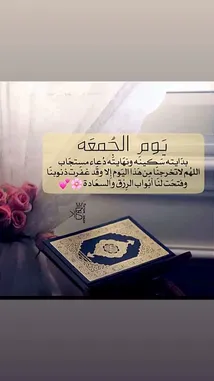 يَوم الجُمعَه
بدَايته سَكينَه ونهَايتُه دُعاء مستجَاب
اللهُم لاتخرجنَا مِن هَذا اليَوم إلا وقَد غفَرت ذنوبنَا
وفتحَت لنَا أبوَاب الرِزق والسعَادة🌸💕